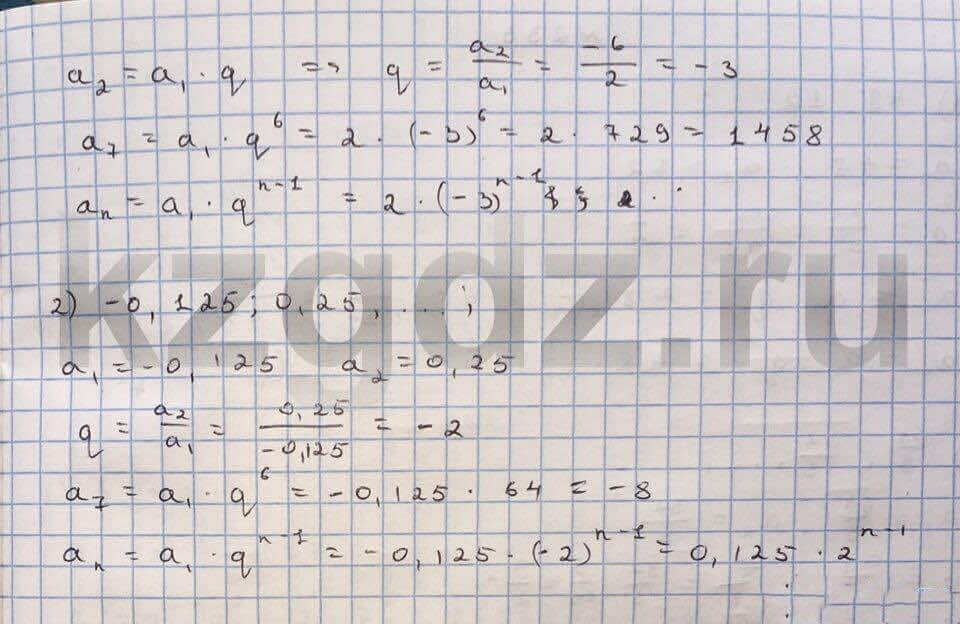 a₂ = a₁ · q => q = a₂/a₁ = -6/2 = -3
a₇ = a₁ · q⁶ = 2 · (-3)⁶ = 2 · 729 = 1458
aₙ = a₁ · qⁿ⁻¹ = 2 · (-3)ⁿ⁻¹
kzgdz.ru
2) -0,125; 0,25, ...;
a₁ = -0,125 a₂ = 0,25
q = a₂/a₁ = 0,25/-0,125 = -2
a₇ = a₁ · q⁶ = -0,125 · 64 = -8
aₙ = a₁ · qⁿ⁻¹ = -0,125 · (-2)ⁿ⁻¹ = 0,125 · 2ⁿ⁻¹